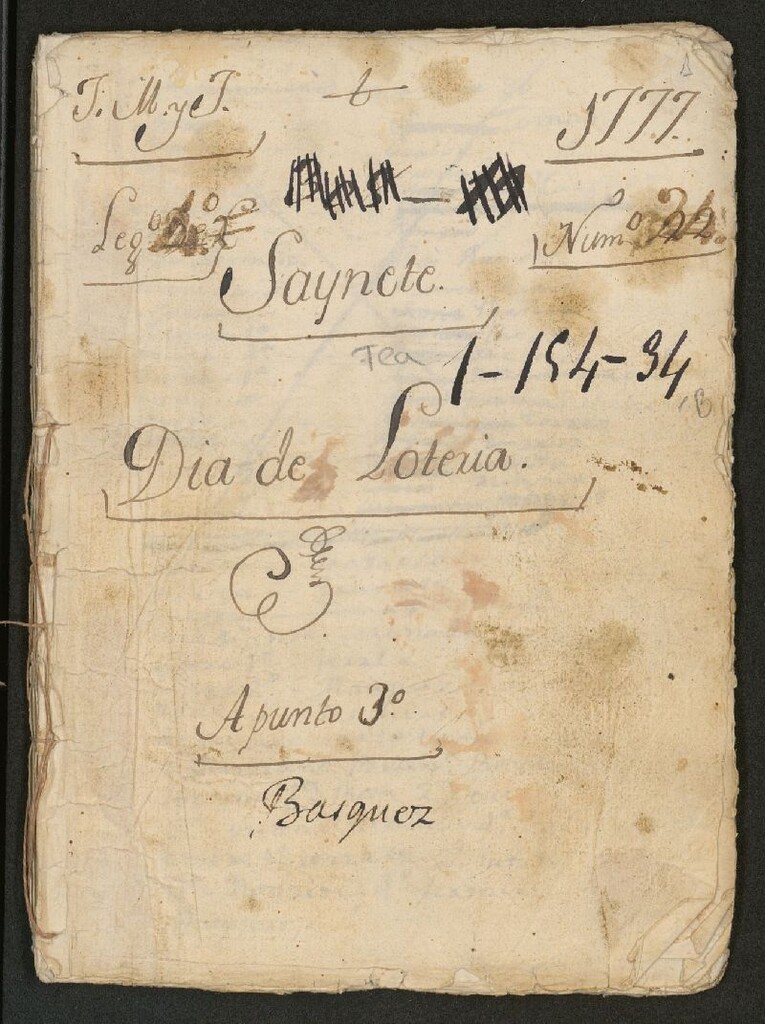 J. M. y J. 1777.
Legº 1º
Numº
Saynete.
Tea 1-154-34
, B
Dia de Loteria.
Apunto 3º
Basquez